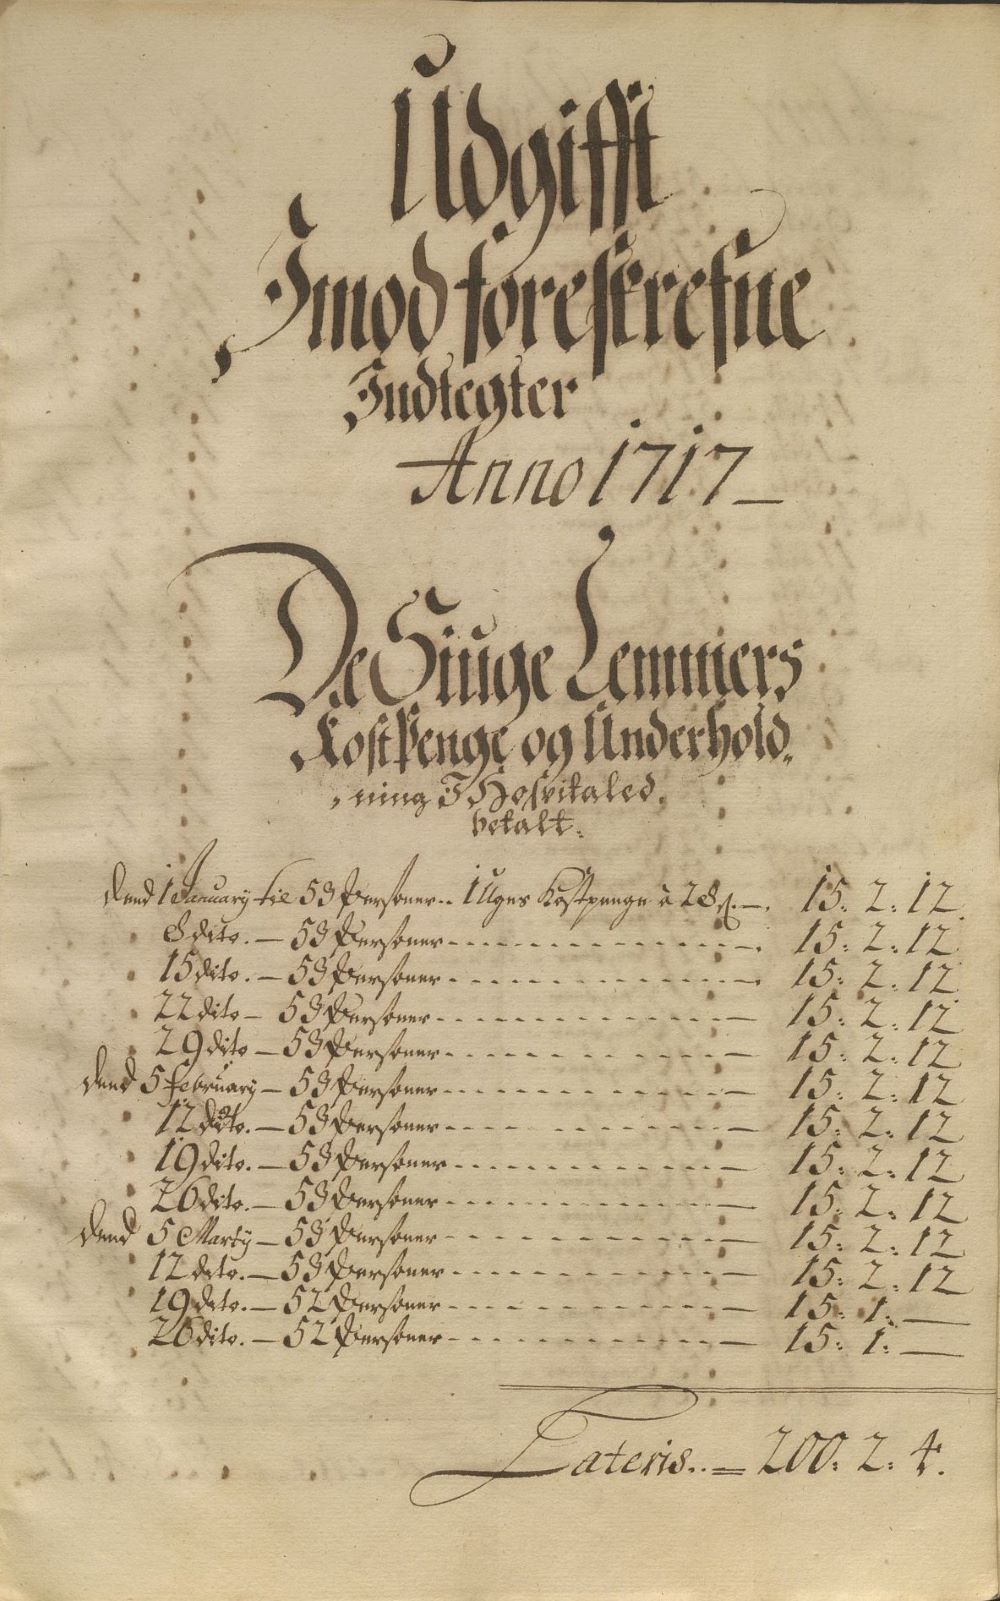 Udgifft
Imod foreskrefne
Indtegter
Anno 1717
De Siuge Lemmers
Kost Penge og Underhold„
„ning I Hospitaled.
betalt.
dend 1 January til 53 Personer.. 1 Uges Kostpenge à 28 ß. —. 15: 2: 12.
8 dito. — 53 Personer - - - - - - - - - - - - —. 15: 2: 12.
15 dito. — 53 Personer - - - - - - - - - - - - —. 15: 2: 12
22 dito — 53 Personer - - - - - - - - - - - - — 15: 2: 12
29 dito — 53 Personer - - - - - - - - - - - - — 15: 2: 12
dend 5 February — 53 Personer - - - - - - - - - - - - — 15: 2: 12
12 dito. — 53 Personer - - - - - - - - - - - — 15: 2: 12
19 dito. — 53 Personer - - - - - - - - - - - - — 15: 2: 12
26 dito. — 53 Personer - - - - - - - - - - - - — 15: 2: 12
dend 5 Marty — 53 Personer - - - - - - - - - - - - — 15: 2: 12
12 dito. — 53 Personer - - - - - - - - - - - - — 15: 2: 12
19 dito. — 52 Personer - - - - - - - - - - - - — 15: 1: —
26 dito. — 52 Personer - - - - - - - - - - - - — 15: 1: —
Lateris.. = 200: 2: 4.